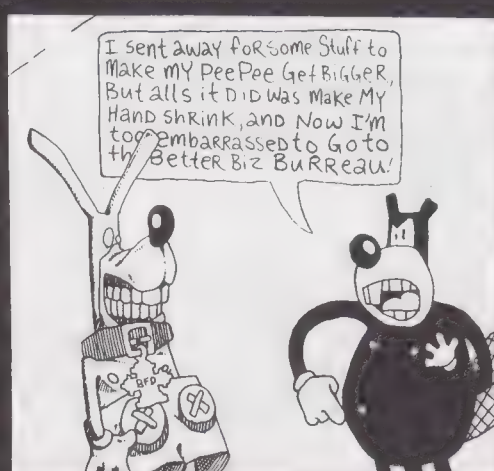 I sent away foR some Stuff to
Make mY PeePee Get BiGGeR,
But alls it DiD Was Make MY
HanD shRink, and Now I'm
too embarrasseD to Go to
the Better Biz BuRReau!
BFD